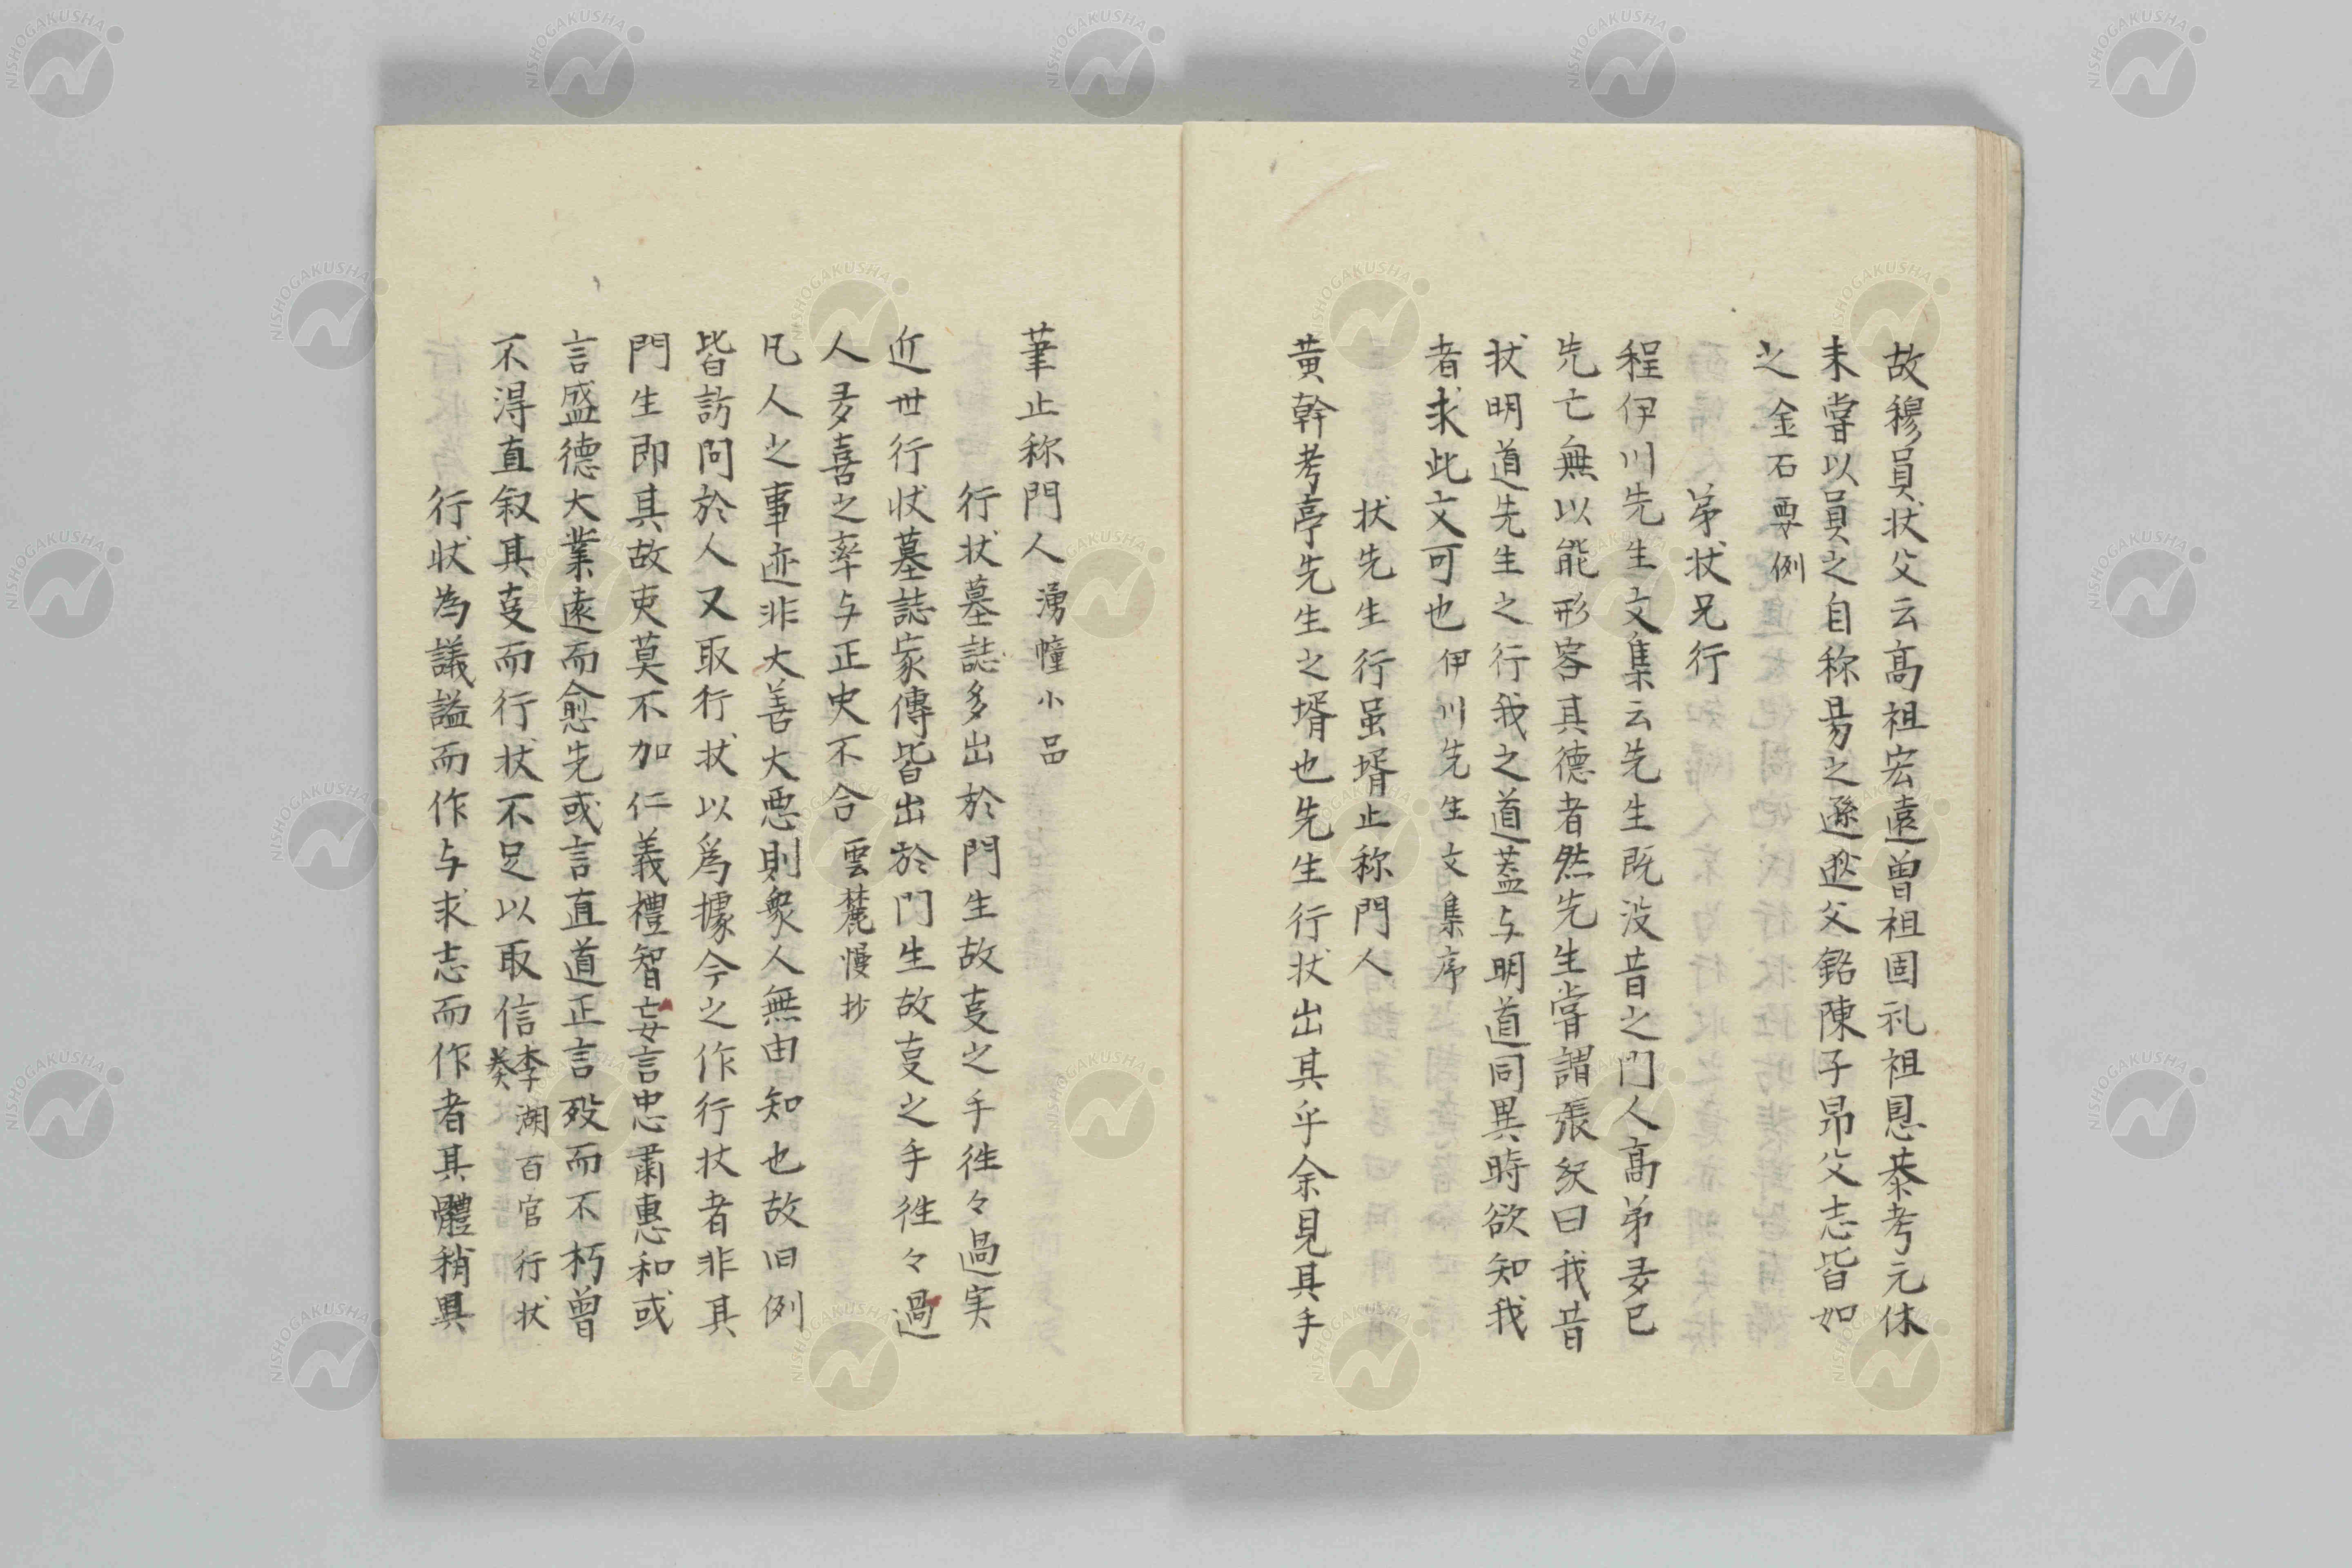 故穆員状父云髙祖宏遠曽祖固礼祖思恭考元休
未甞以員之自称昜之遜逖父銘陳子昂父志皆如
之 金石要例
弟状兄行
程伊川先生文集云先生既没昔之門人髙弟多已
先亡無以能形容其德者然先生甞謂張繹曰我昔
状明道先生之行我之道葢与明道同異時欲知我
者求此文可也 伊川先生文集序
状先生行虽壻止称門人
黄幹考亭先生之壻也先生行状出其手余見其手
筆止称門人 湧幢小品
行状墓誌多出於門生故叓之手徃々過実
近世行状墓誌家傳皆出於门生故叓之手徃々過
人多喜之率与正史不合 雲麓慢抄
凡人之事迹非大善大悪則衆人無由知也故旧例
皆訪问於人又取行状以爲據今之作行状者非其
門生即其故吏莫不加仁義禮智妄言忠肅惠和或
言盛德大業遠而愈光或言直道正言歿而不朽曽
不得直叙其叓而行状不足以取信 李湖百官行状
奏
行状為議謚而作与求志而作者其體稍異